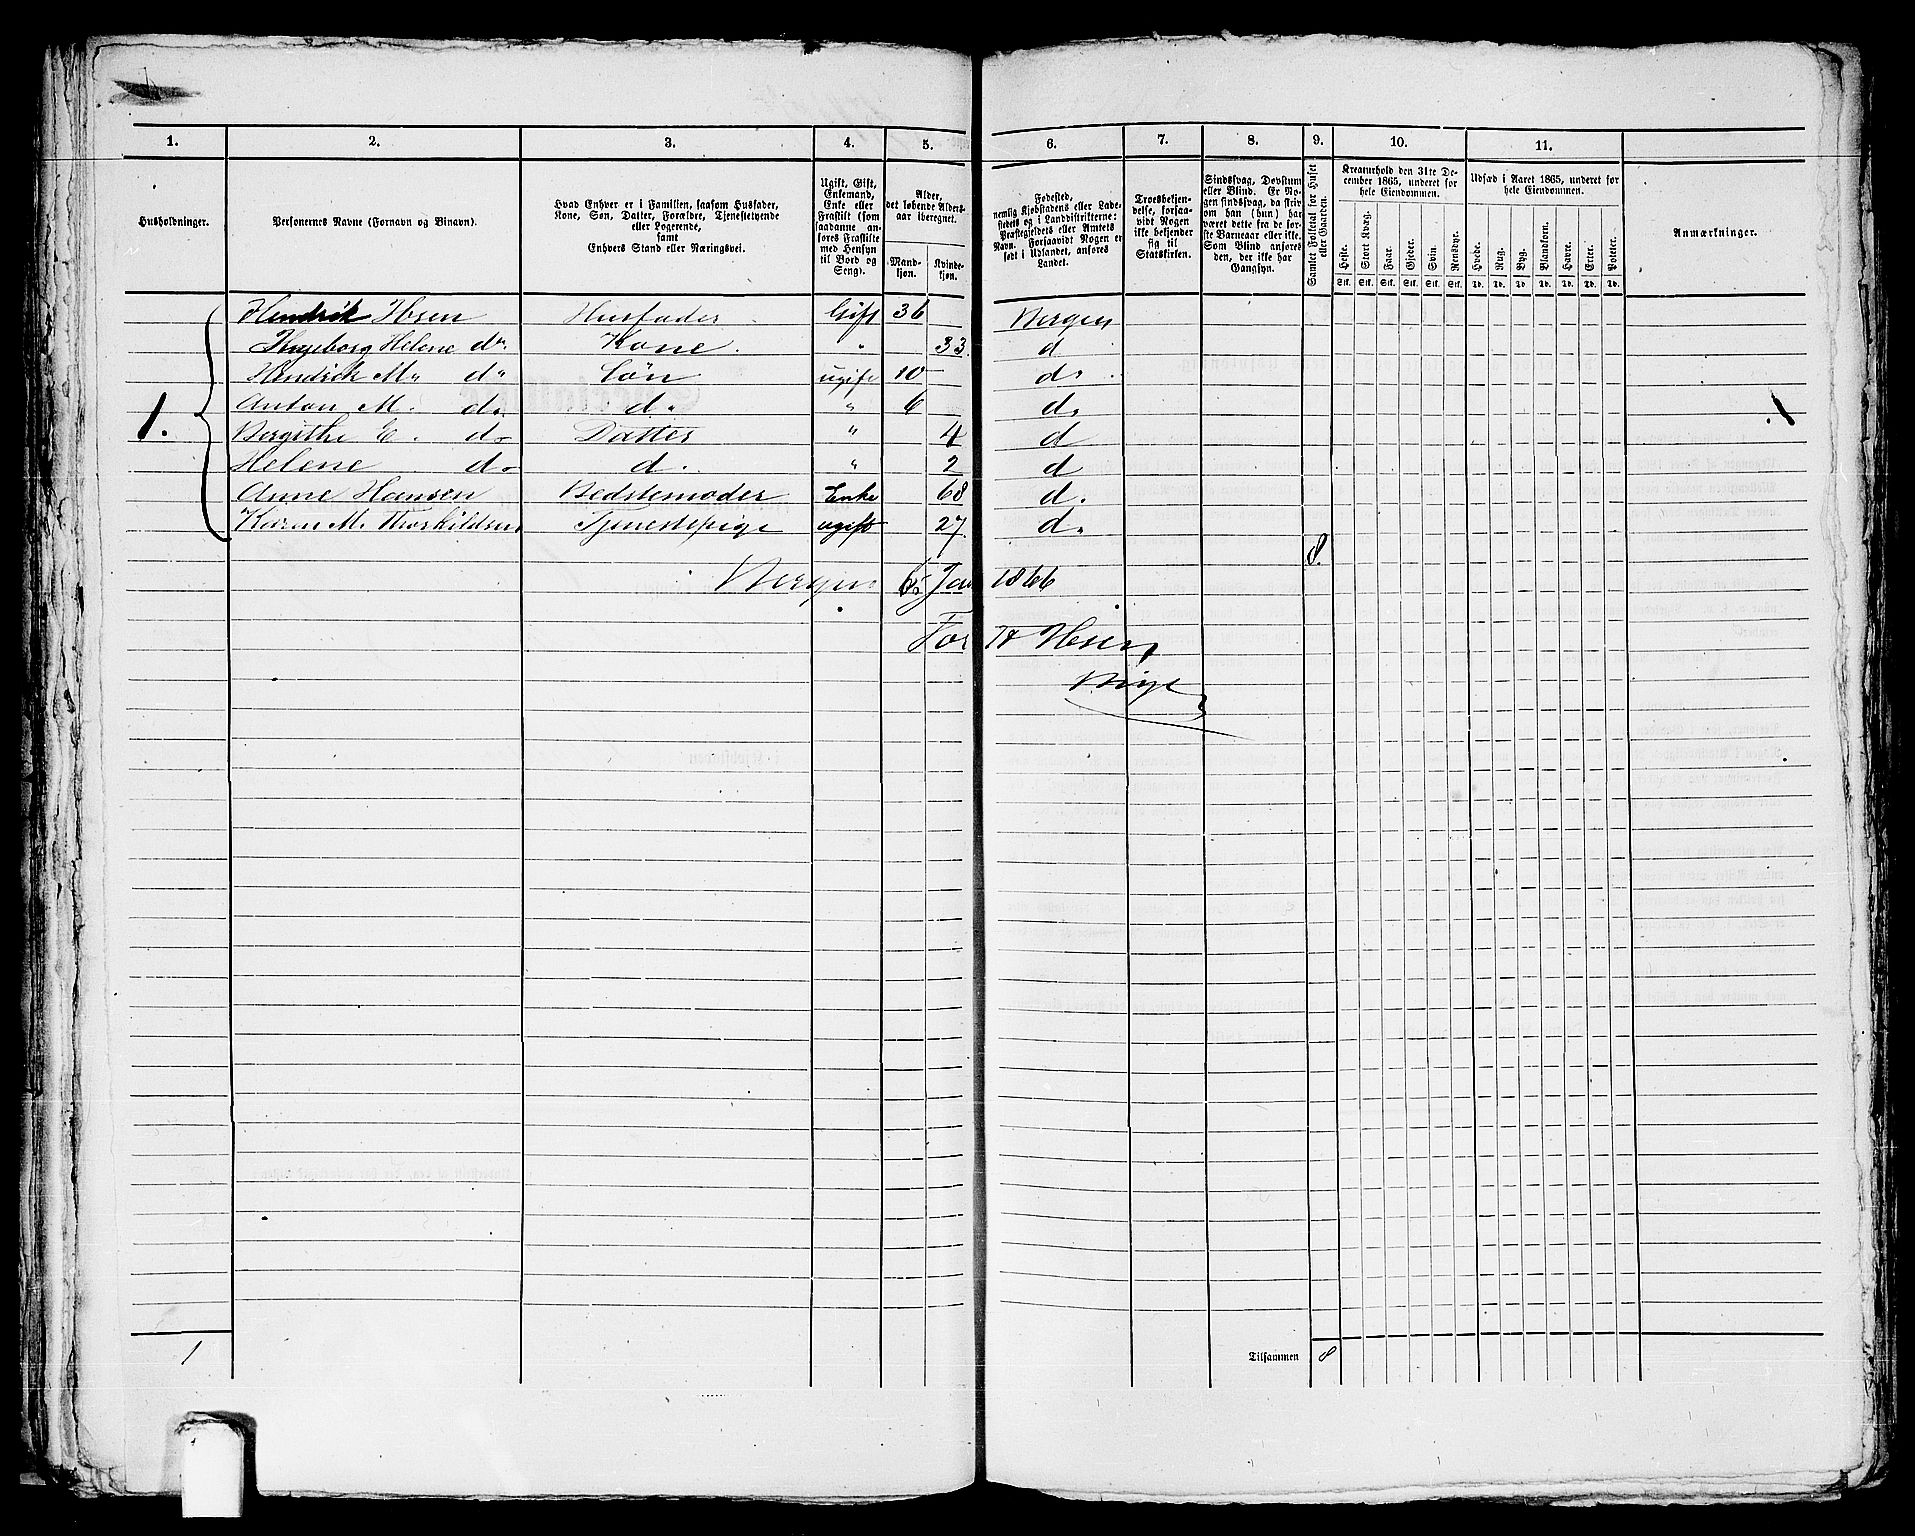 1. 2. 3. 4. 5. 6. 7. 8. 9. 10. 11.
Husholdninger.
Personernes Navne (Fornavn og Binavn).
Hvad Enhver er i Familien, saasom Husfader,
Kone, Søn, Datter, Forældre, Tjenestetyende
eller Logerende,
samt
Enhvers Stand eller Næringsvei.
Ugift, Gift,
Enkemand,
Enke eller
Fraskilt (som
saadanne an-
føres Fraskilte
med Hensyn
til Bord og
Seng).
Alder,
det løbende Alders-
aar iberegnet.
Mand-
kjøn.
Kvinde-
kjøn.
Fødested,
nemlig Kjøbstadens eller Lade-
stedets og i Landdistrikterne:
Præstegjeldets eller Amtets
Navn. Forsaavidt Nogen er
født i Udlandet, anføres
Landet.
Troesbekjen-
delse, forsaa-
vidt Nogen
ikke bekjender
sig til
Statskirken.
Sindssvag, Døvstum
eller Blind. Er No-
gen sindssvag, da skriv
om han (hun) har
været dette fra de før-
ste Barneaar eller ikke.
Som Blind anføres
den, der ikke har
Gangsyn.
Samlet Folketal for Huset
eller Gaarden.
Kreaturhold den 31te De-
cember 1865, underet for
hele Eiendommen.
Heste. Stort Kvæg. Faar. Gjeder. Svin. Rensdyr.
Stk. Stk. Stk. Stk. Stk. Stk.
Udsæd i Aaret 1865, underet for
hele Eiendommen.
Hvede. Rug. Byg. Blandkorn. Havre. Erter. Poteter.
Td. Td. Td. Td. Td. Td. Td.
Anmærkninger.
Hendrik Ibsen Husfader Gift 36 Bergen
Ingeborg Helene do. Kone " 33 d
Hendrik M. do Søn ugift 10 do
Anton M. do. d. " 6 d.
1. Bergithe E. do Datter " 4 d
Helene do d. " 2 d
Anne Hansen Bedstemoder Enke 68 d.
Karen M. Thorkildsen Tjenestepige ugift 27 d.
8.
Bergen Jan 1866
For H Ibsen
1
Tilsammen 8